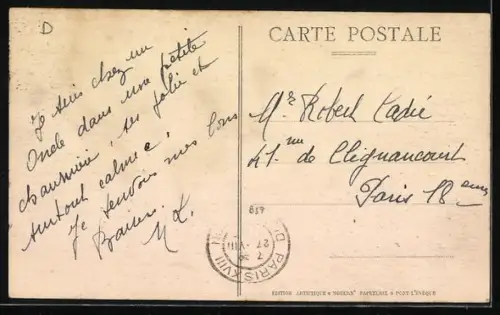 D
CARTE POSTALE
Je suis chez un
Oncle dans une petite
chaumière, très jolie et
surtout calme!
Je t'envois mes bons
Baisers.
M L.
Mr Robert
41 rue de Clignancourt
Paris 18 ème
PARIS XVIII
7 30
27 VIII
EDITION ARTISTIQUE PAPETERIE PONT-L'EVEQUE